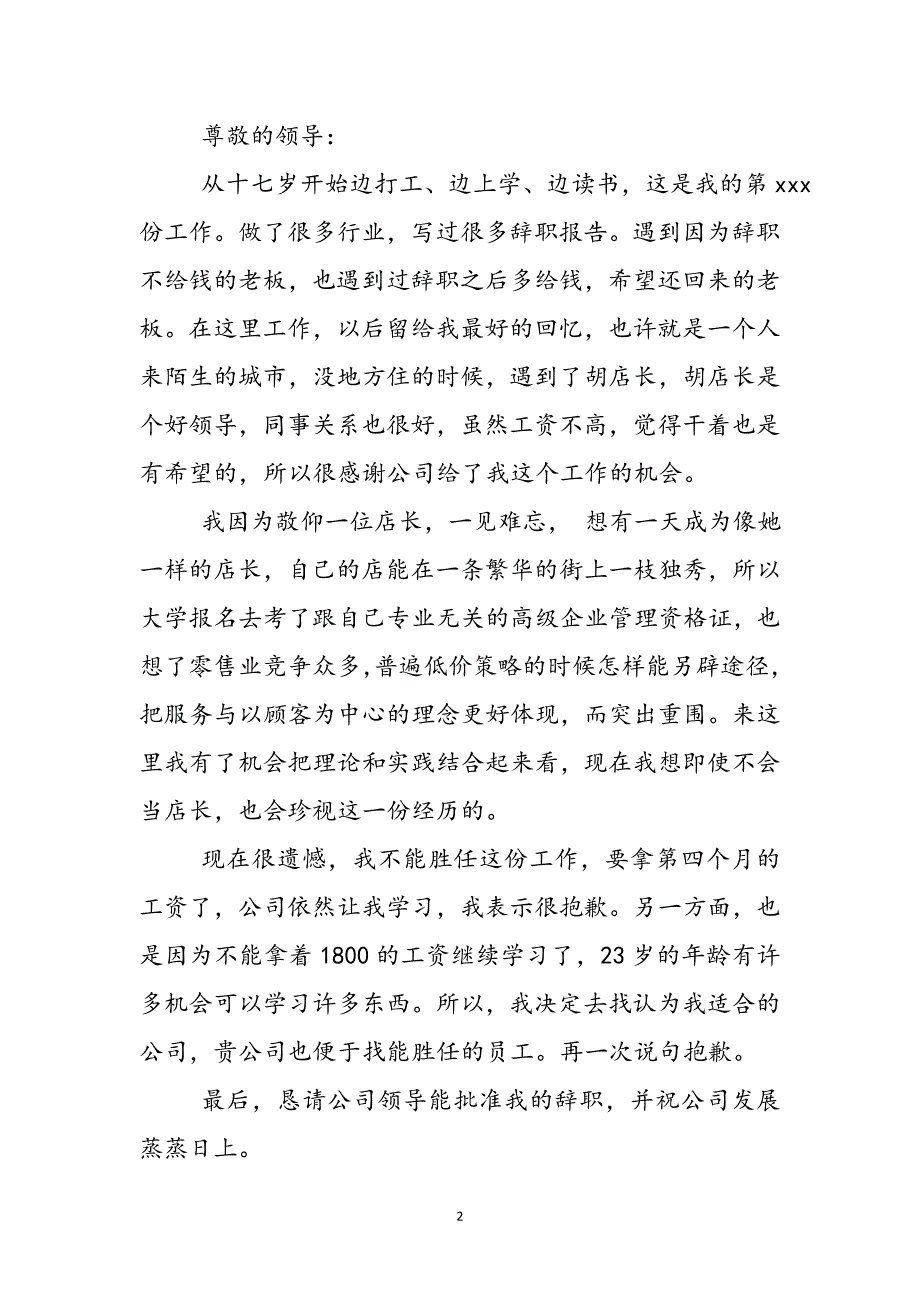 尊敬的领导：
从十七岁开始边打工、边上学、边读书，这是我的第 xxx
份工作。做了很多行业，写过很多辞职报告。遇到因为辞职
不给钱的老板，也遇到过辞职之后多给钱，希望还回来的老
板。在这里工作，以后留给我最好的回忆，也许就是一个人
来陌生的城市，没地方住的时候，遇到了胡店长，胡店长是
个好领导，同事关系也很好，虽然工资不高，觉得干着也是
有希望的，所以很感谢公司给了我这个工作的机会。
我因为敬仰一位店长，一见难忘， 想有一天成为像她
一样的店长，自己的店能在一条繁华的街上一枝独秀，所以
大学报名去考了跟自己专业无关的高级企业管理资格证，也
想了零售业竞争众多，普遍低价策略的时候怎样能另辟途径，
把服务与以顾客为中心的理念更好体现，而突出重围。来这
里我有了机会把理论和实践结合起来看，现在我想即使不会
当店长，也会珍视这一份经历的。
现在很遗憾，我不能胜任这份工作，要拿第四个月的
工资了，公司依然让我学习，我表示很抱歉。另一方面，也
是因为不能拿着 1800 的工资继续学习了，23 岁的年龄有许
多机会可以学习许多东西。所以，我决定去找认为我适合的
公司，贵公司也便于找能胜任的员工。再一次说句抱歉。
最后，恳请公司领导能批准我的辞职，并祝公司发展
蒸蒸日上。
2